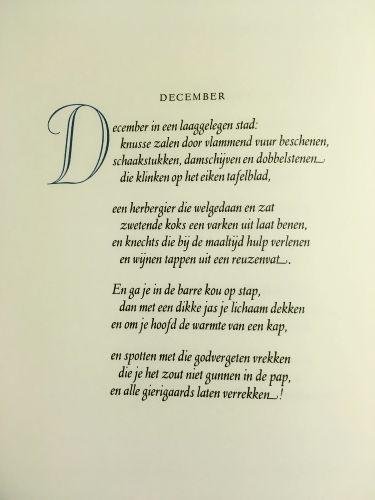 DECEMBER
December in een laaggelegen stad:
knusse zalen door vlammend vuur beschenen,
schaakstukken, damschijven en dobbelstenen
die klinken op het eiken tafelblad,
een herbergier die welgedaan en zat
zwetende koks een varken uit laat benen,
en knechts die bij de maaltijd hulp verlenen
en wijnen tappen uit een reuzenvat.
En ga je in de barre kou op stap,
dan met een dikke jas je lichaam dekken
en om je hoofd de warmte van een kap,
en spotten met die godvergeten vrekken
die je het zout niet gunnen in de pap,
en alle gierigaards laten verrekken!